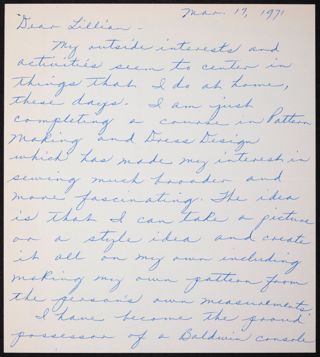 Mar. 17, 1971
Dear Lillian -
My outside interests and
activities seem to center in
things that I do at home,
these days. I am just
completing a course in Pattern
Making and Dress Design
which has made my interest in
sewing much broader and
more fascinating. The idea
is that I can take a picture
or a style idea and create
it all on my own including
making my own pattern from
the person's own measurements.
I have become the proud
possessor of a Baldwin console